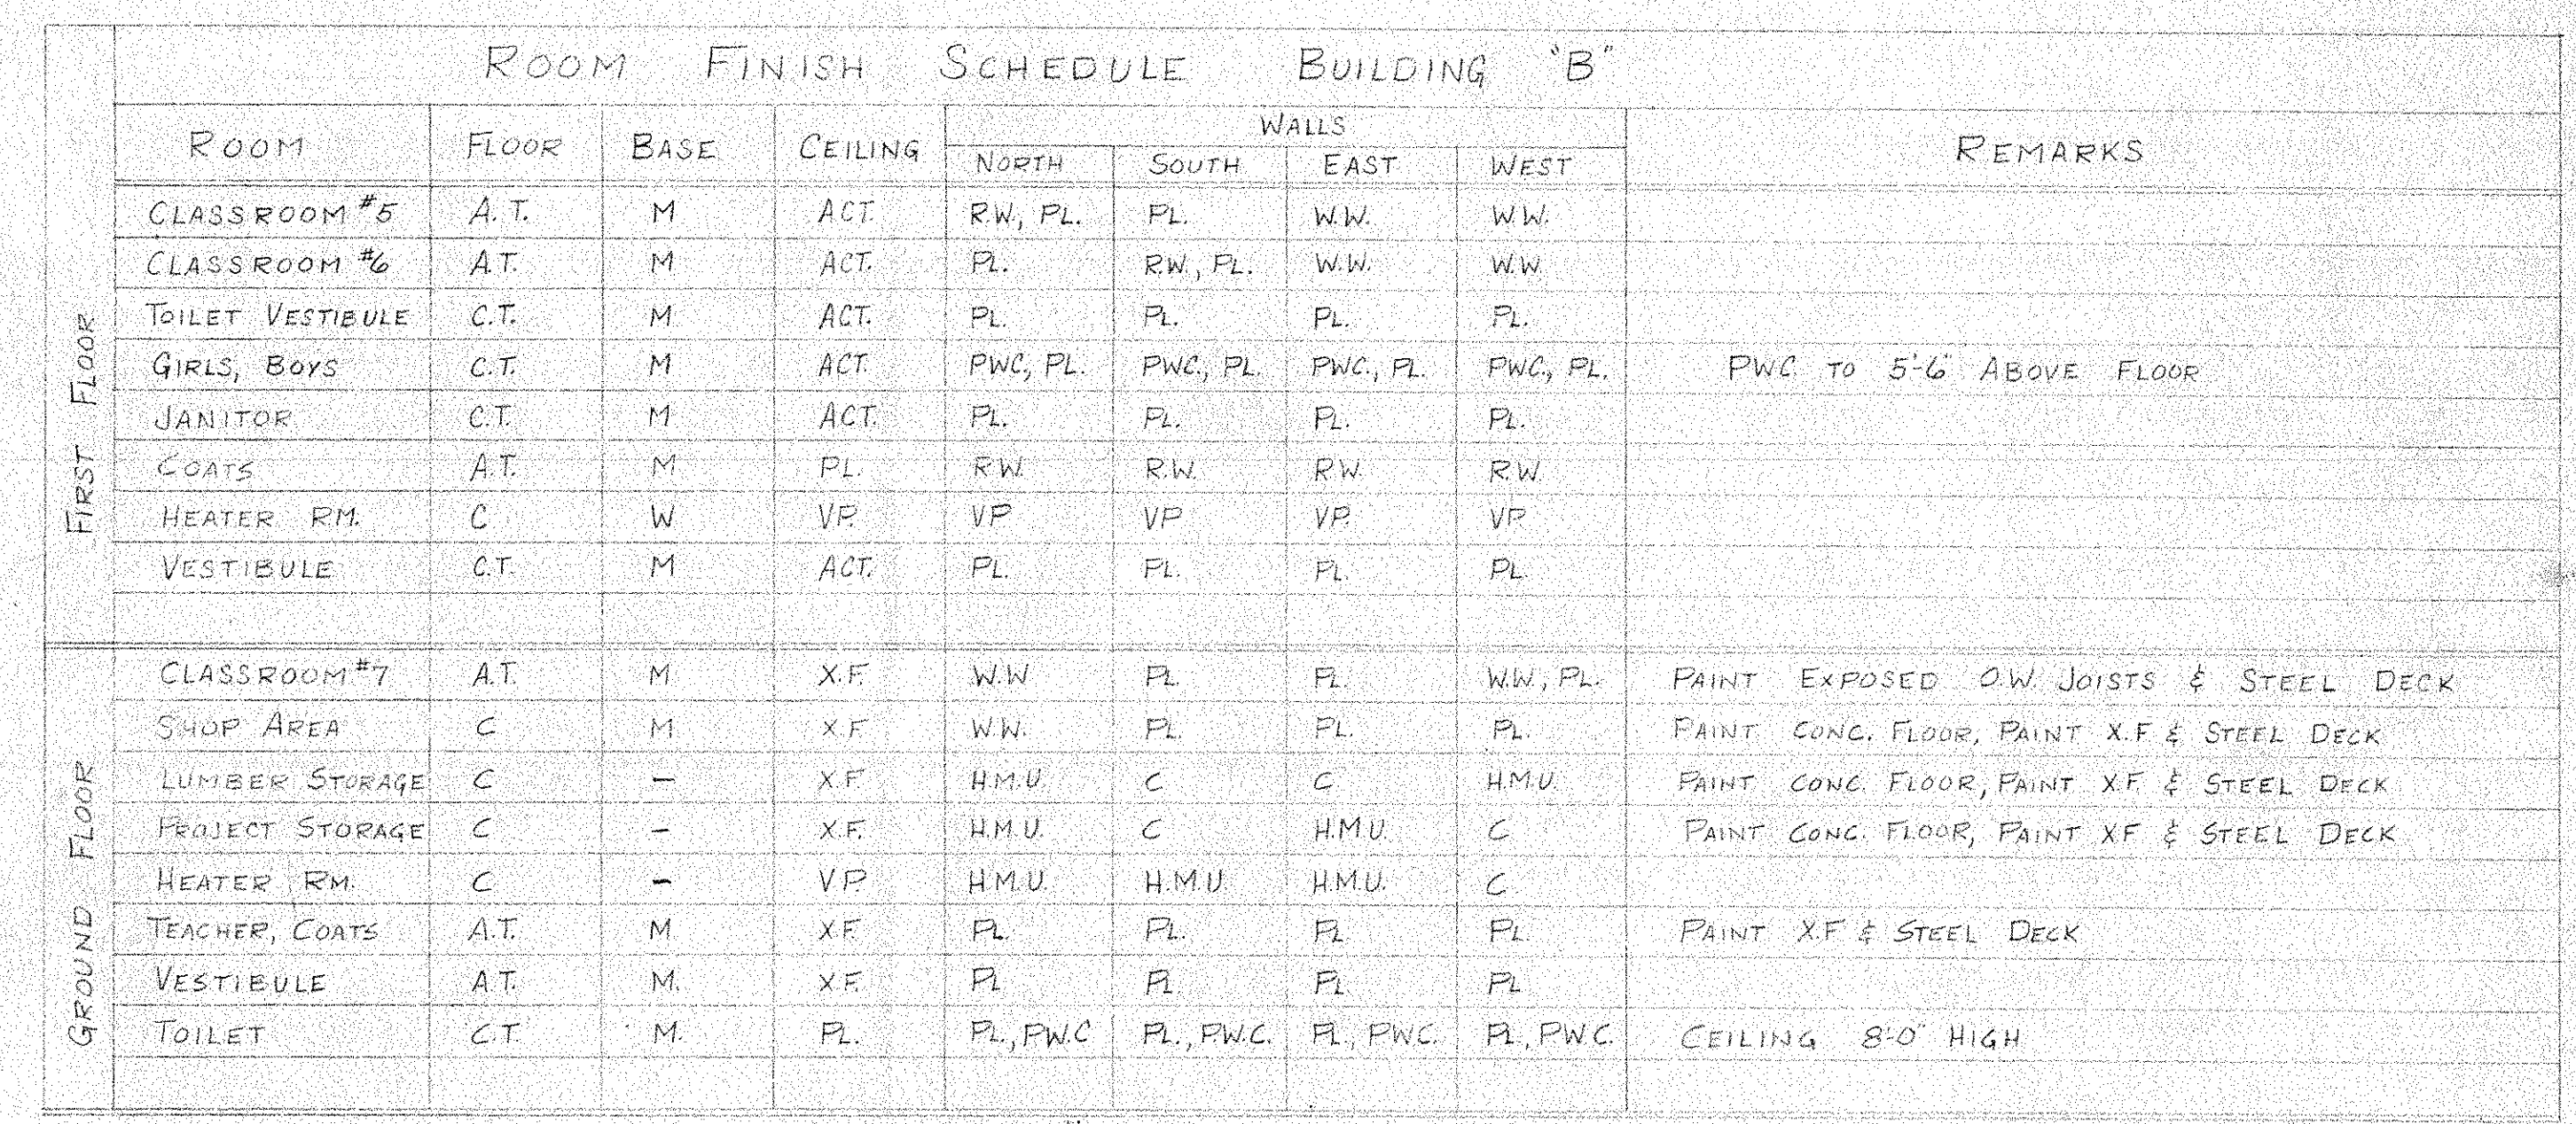 ROOM FINISH SCHEDULE BUILDING "B"
ROOM FLOOR BASE CEILING WALLS REMARKS
NORTH SOUTH EAST WEST
FIRST FLOOR
CLASSROOM #5 A.T. M ACT. R.W., PL. PL. W.W. W.W.
CLASSROOM #6 A.T. M ACT. PL. R.W., PL. W.W. W.W.
TOILET VESTIBULE C.T. M ACT. PL. PL. PL. PL.
GIRLS, BOYS C.T. M ACT. PWC., PL. PWC., PL. PWC., PL. PWC., PL. PWC TO 5'-6" ABOVE FLOOR
JANITOR C.T. M ACT. PL. PL. PL. PL.
COATS A.T. M PL. R.W. R.W. R.W. R.W.
HEATER RM. C W V.P. VP VP VP. VP
VESTIBULE C.T. M ACT. PL. PL. PL. PL.
GROUND FLOOR
CLASSROOM #7 A.T. M X.F. W.W PL. PL. W.W., PL. PAINT EXPOSED O.W. JOISTS & STEEL DECK
SHOP AREA C M X.F W.W. PL. PL. PL. PAINT CONC. FLOOR, PAINT X.F & STEEL DECK
LUMBER STORAGE C – X.F H.M.U. C C H.M.U. PAINT CONC. FLOOR, PAINT X.F. & STEEL DECK
PROJECT STORAGE C – X.F. H.M.U. C H.M.U. C PAINT CONC. FLOOR, PAINT X.F & STEEL DECK
HEATER RM. C – V.P. H.M.U. H.M.U. H.M.U. C
TEACHER, COATS A.T. M X.F. PL. PL. PL. PL. PAINT X.F & STEEL DECK
VESTIBULE A.T. M. X.F. PL PL PL PL
TOILET C.T. M. PL. PL., P.W.C PL., P.W.C. PL., P.W.C. PL., P.W.C. CEILING 8'-0" HIGH